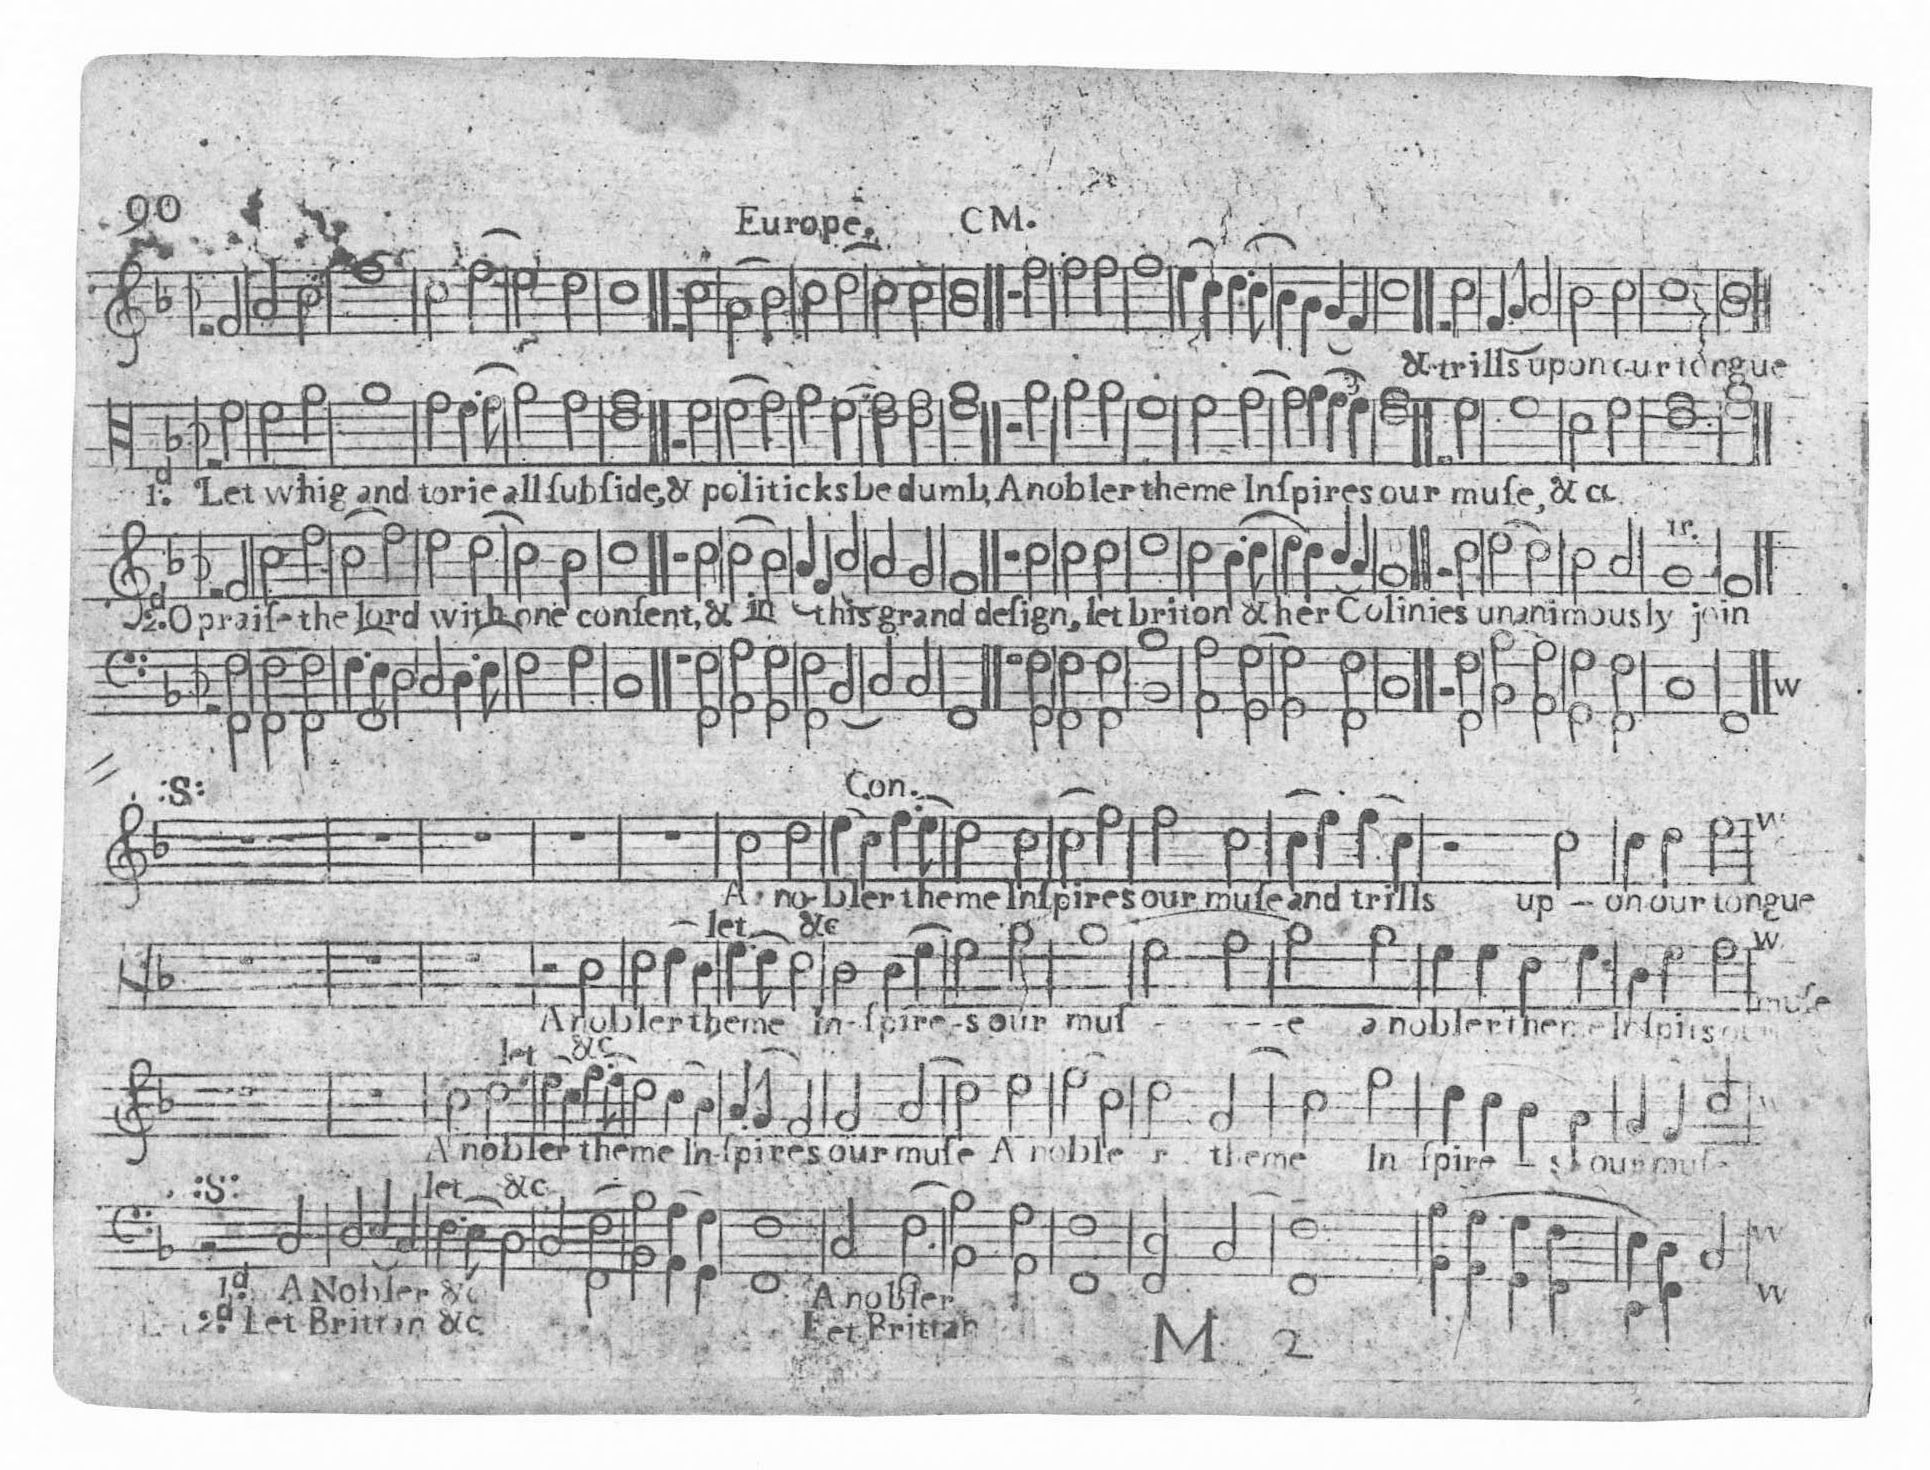 90
Europe. CM.
& trills upon our tongue
1.d Let whig and torie all ſubſide, & politicks be dumb, A nobler theme Inſpires our muſe, & cc.
tr.
2.d O praiſ- the lord with one conſent, & in this grand deſign, let briton & her Colinies unanimously join
:S: Con.
A no-bler theme Inſpires our muſe and trills up - on our tongue
let &c
A nobler theme in-ſpire-s our muſ - - - - e a nobler theme Inſpirs our muſe
let &c
A nobler theme In-ſpires our muſe A noble r theme In ſpire - s our muſe
:S: let &c
1.d A Nobler &c A nobler
2.d Let Brittan &c Let Brittan
M 2